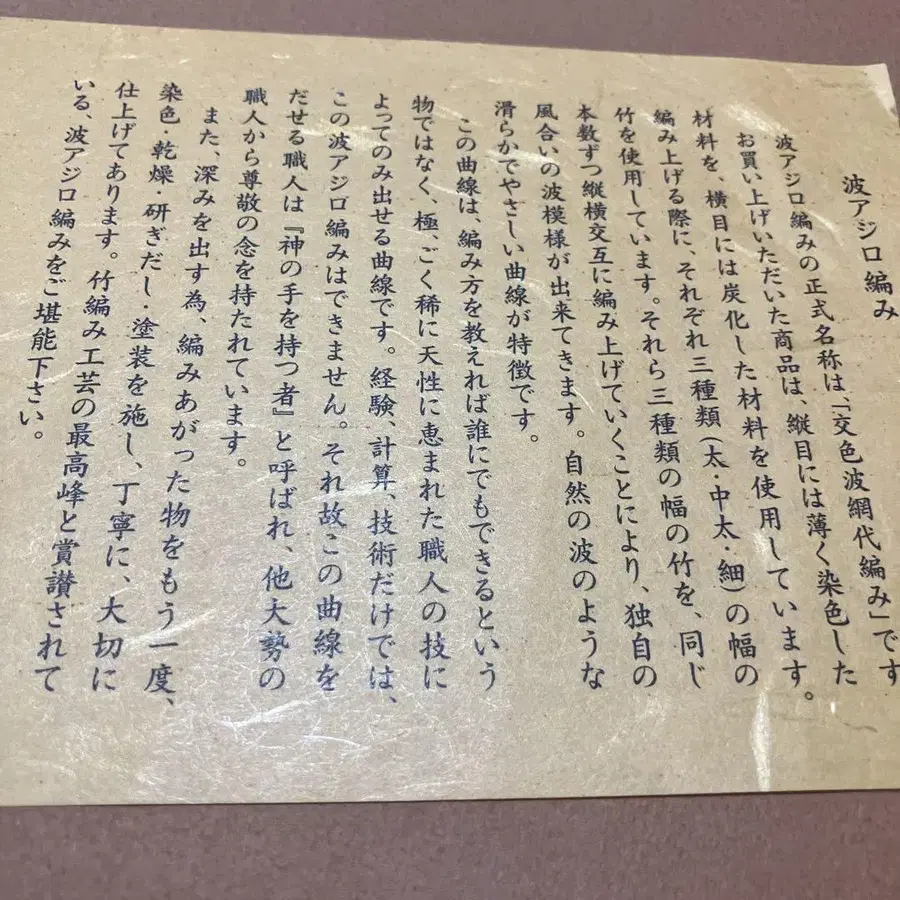 波アジロ編み
波アジロ編みの正式名称は、「交色波網代編み」です
お買い上げいただいた商品は、縦目には薄く染色した
材料を、横目には炭化した材料を使用しています。
編み上げる際に、それぞれ三種類（太・中太・細）の幅の
竹を使用しています。それら三種類の幅の竹を、同じ
本数ずつ縦横交互に編み上げていくことにより、独自の
風合いの波模様が出来てきます。自然の波のような
滑らかでやさしい曲線が特徴です。
この曲線は、編み方を教えれば誰にでもできるという
物ではなく、極、ごく稀に天性に恵まれた職人の技に
よってのみ出せる曲線です。経験、計算、技術だけでは、
この波アジロ編みはできません。それ故この曲線を
だせる職人は『神の手を持つ者』と呼ばれ、他大勢の
職人から尊敬の念を持たれています。
また、深みを出す為、編みあがった物をもう一度、
染色・乾燥・研ぎだし・塗装を施し、丁寧に、大切に
仕上げてあります。竹編み工芸の最高峰と賞讃されて
いる、波アジロ編みをご堪能下さい。